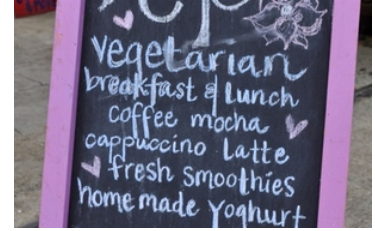 vegetarian
breakfast & Lunch
coffee mocha
cappuccino Latte
fresh smoothies
home made Yoghurt